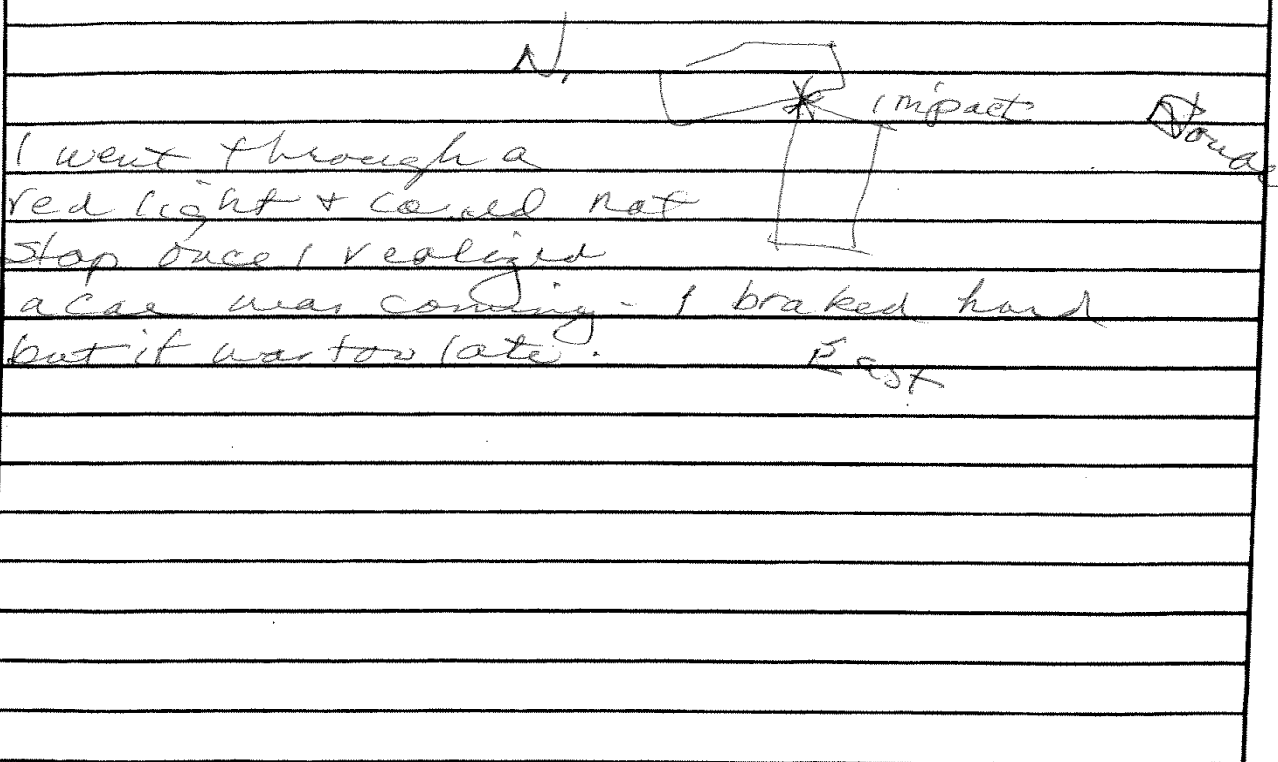 N.
impact
I went through a
red light + could not
stop once I realized
a car was coming - I braked hard
but it was too late.
East